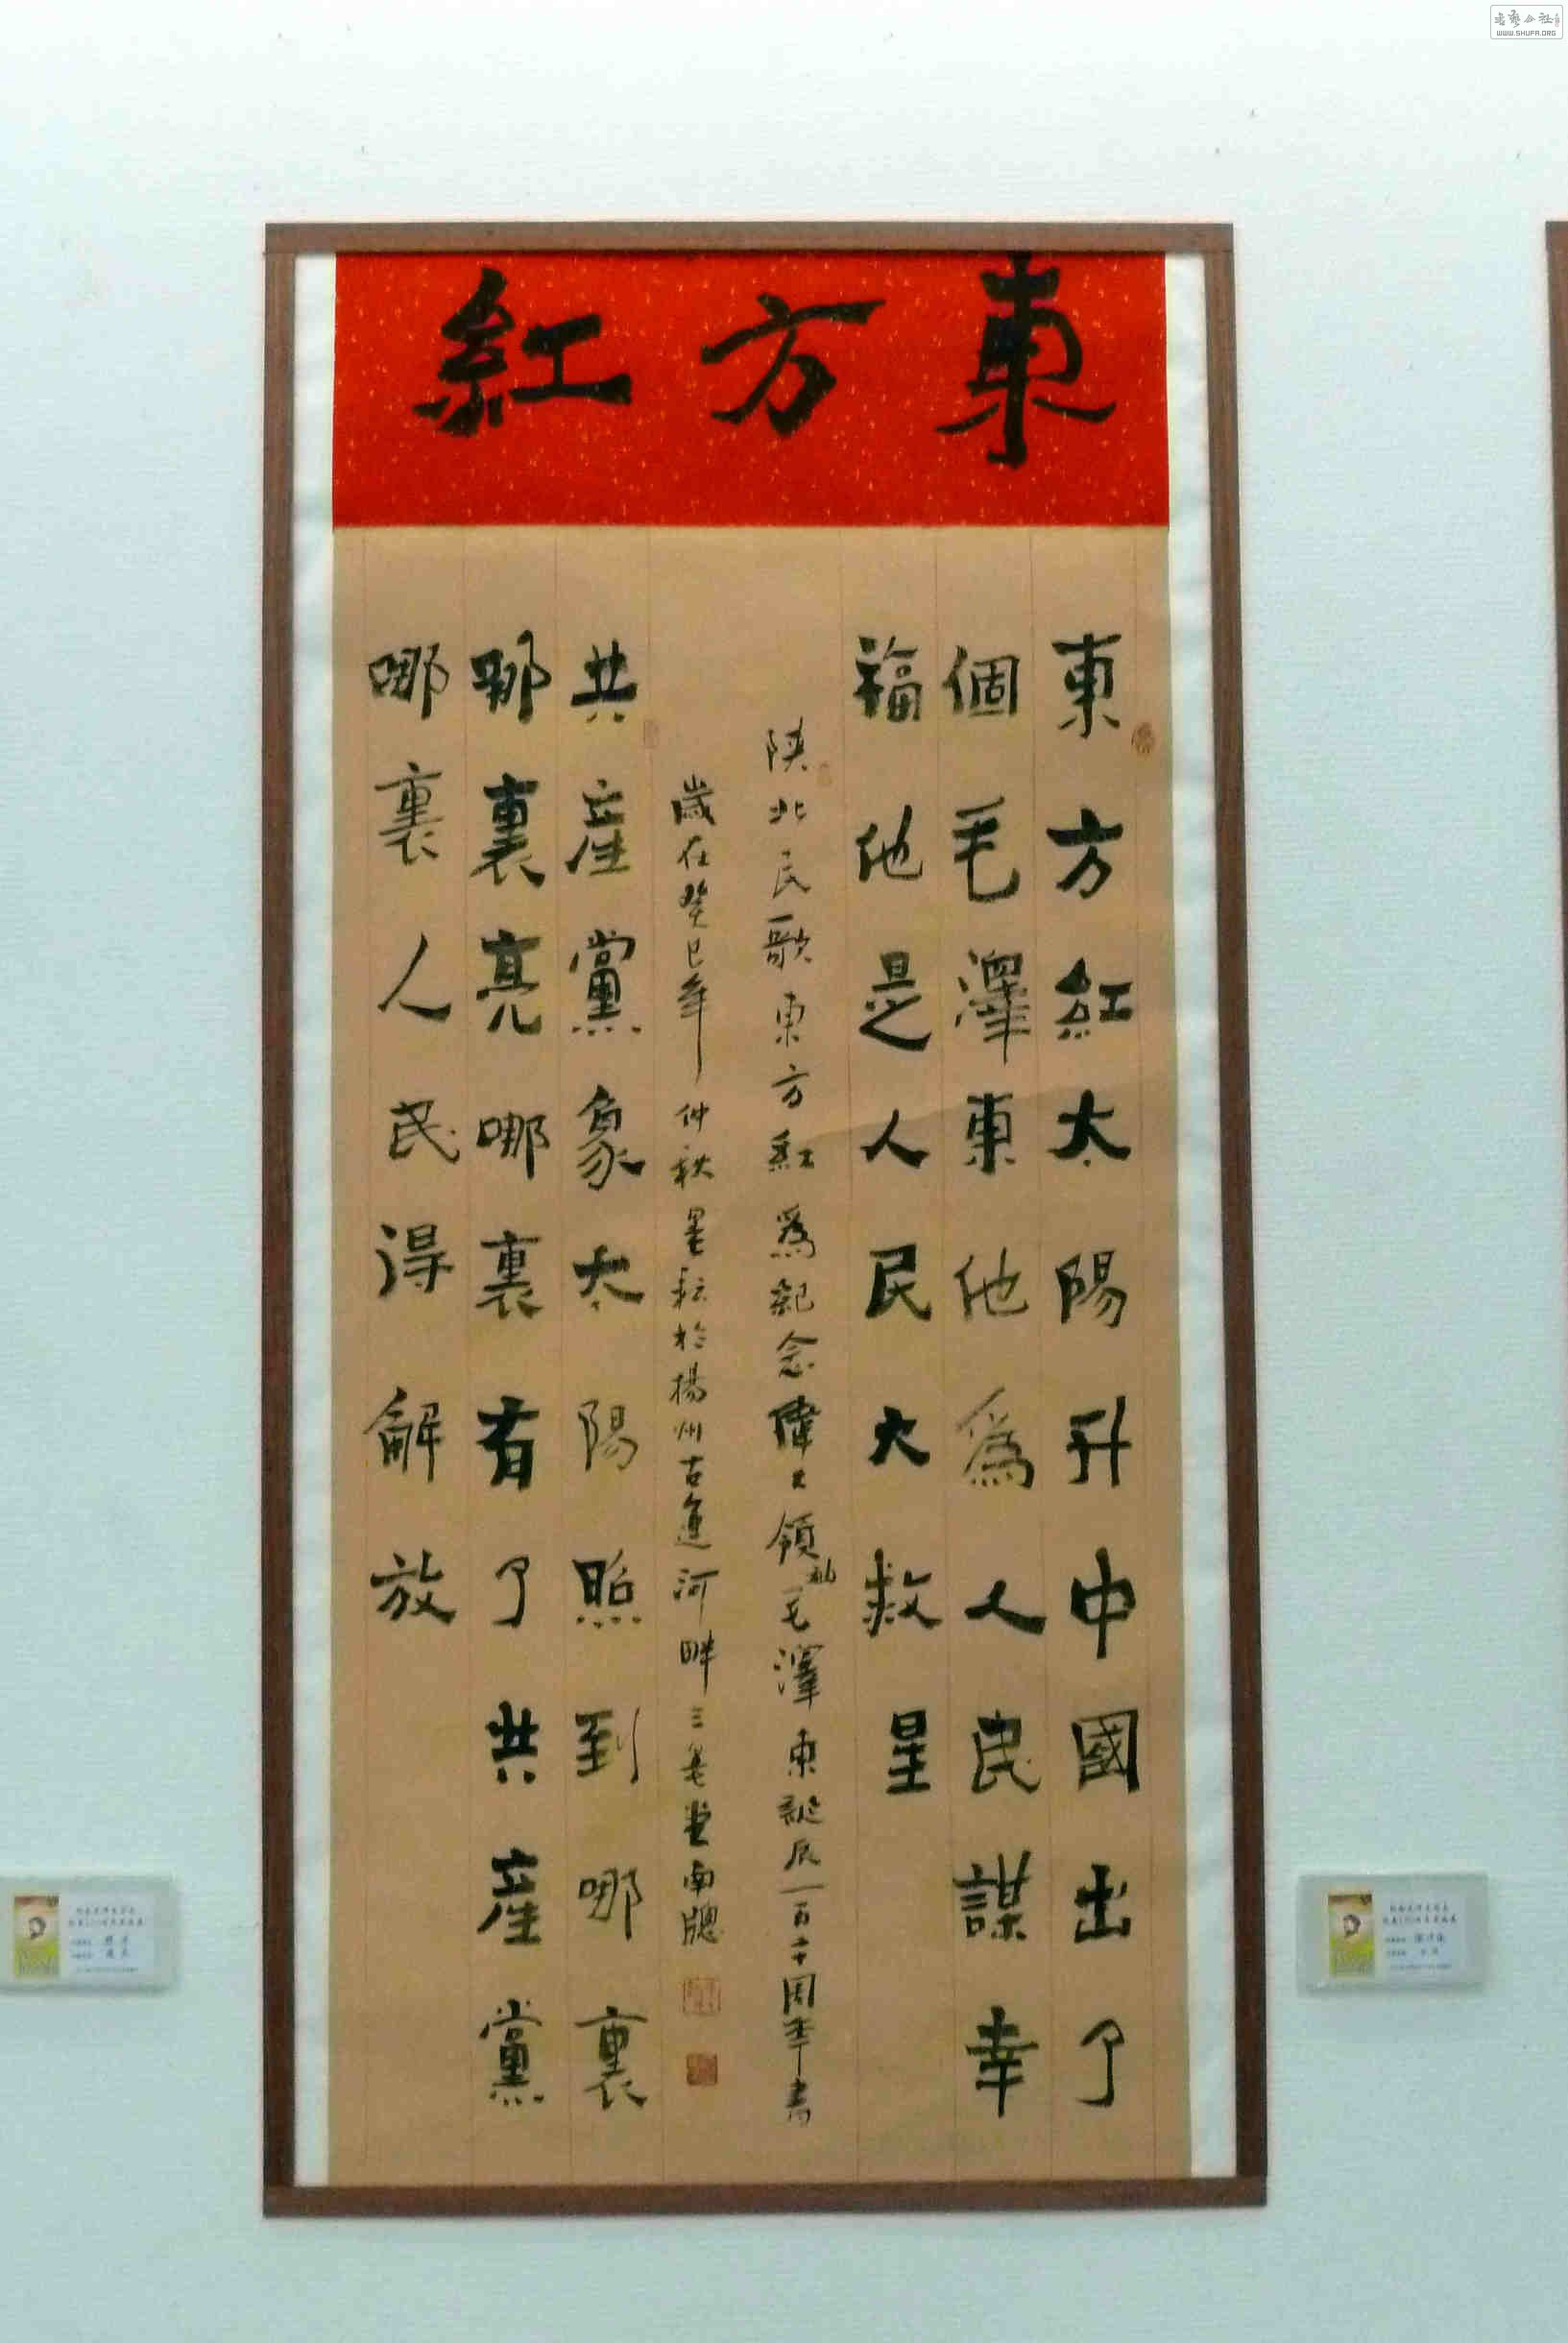 東方紅
東方紅太陽升中國出了
個毛澤東他為人民謀幸
福他是人民大救星
陝北民歌東方紅為紀念偉大領袖毛澤東誕辰一百二十周年書
歲在癸巳年仲秋墨耘於揚州古運河畔三羊堂南牕
共產黨象太陽照到哪裏
哪裏亮哪裏有了共產黨
哪裏人民得解放
WWW.SHUFA.ORG